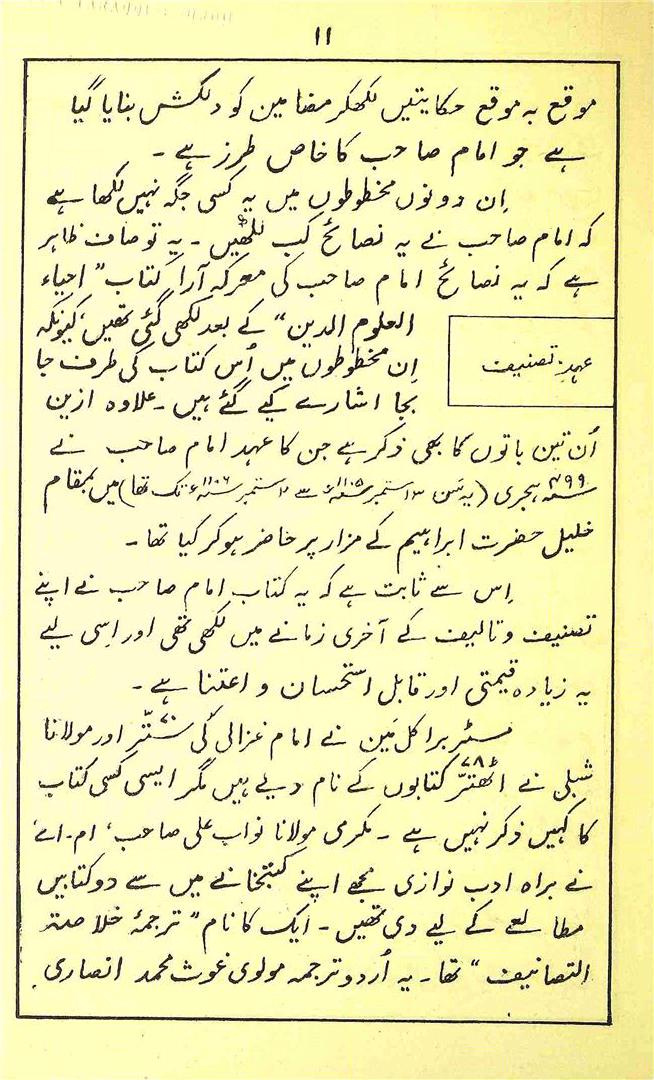 ۱۱
موقع بہ موقع حکایتیں لکھکر مضامین کو دلکش بنایا گیا
ہے جو امام صاحب کا خاص طرز ہے ۔
اِن دونوں مخطوطوں میں یہ کسی جگہ نہیں لکھا ہے
کہ امام صاحب نے یہ نصائح کب لکھیں ۔ یہ تو صاف ظاہر
ہے کہ یہ نصائح امام صاحب کی معرکہ آرا کتاب ” احیاء
العلوم الدین “ کے بعد لکھی گئی تھیں، کیونکہ
عہدِ تصنیف
اِن مخطوطوں میں اُس کتاب کی طرف جا
بجا اشارے کیے گئے ہیں ۔ علاوہ ازین
اُن تین باتوں کا بھی ذکر ہے جن کا عہد امام صاحب نے
۴۹۹؁ ہجری (یہ سَن ۱۳ ستمبر ۱۱۰۵؁ء سے ۲ ستمبر ۱۱۰۶؁ء تک تھا) میں بمقام
خلیل حضرت ابراہیم کے مزار پر حاضر ہو کر کیا تھا ۔
اِس سے ثابت ہے کہ یہ کتاب امام صاحب نے اپنے
تصنیف و تالیف کے آخری زمانے میں لکھی تھی اور اِسی لیے
یہ زیادہ قیمتی اور قابل استحسان و اعتنا ہے ۔
مسٹر براکل مَین نے امام غزالی کی ستّر ۷۰ اور مولانا
شبلی نے اٹھتّر ۷۸ کتابوں کے نام دیے ہیں مگر ایسی کسی کتاب
کا کہیں ذکر نہیں ہے ۔ مکرمی مولانا نواب علی صاحب، ام ۔ اے
نے براہ ادب نوازی مجھے اپنے کتبخانے میں سے دو کتابیں
مطالعے کے لیے دی تھیں ۔ ایک کا نام ” ترجمۂ خلاصتہ
التصانیف “ تھا ۔ یہ اُردو ترجمہ مولوی غوث محمد انصاری